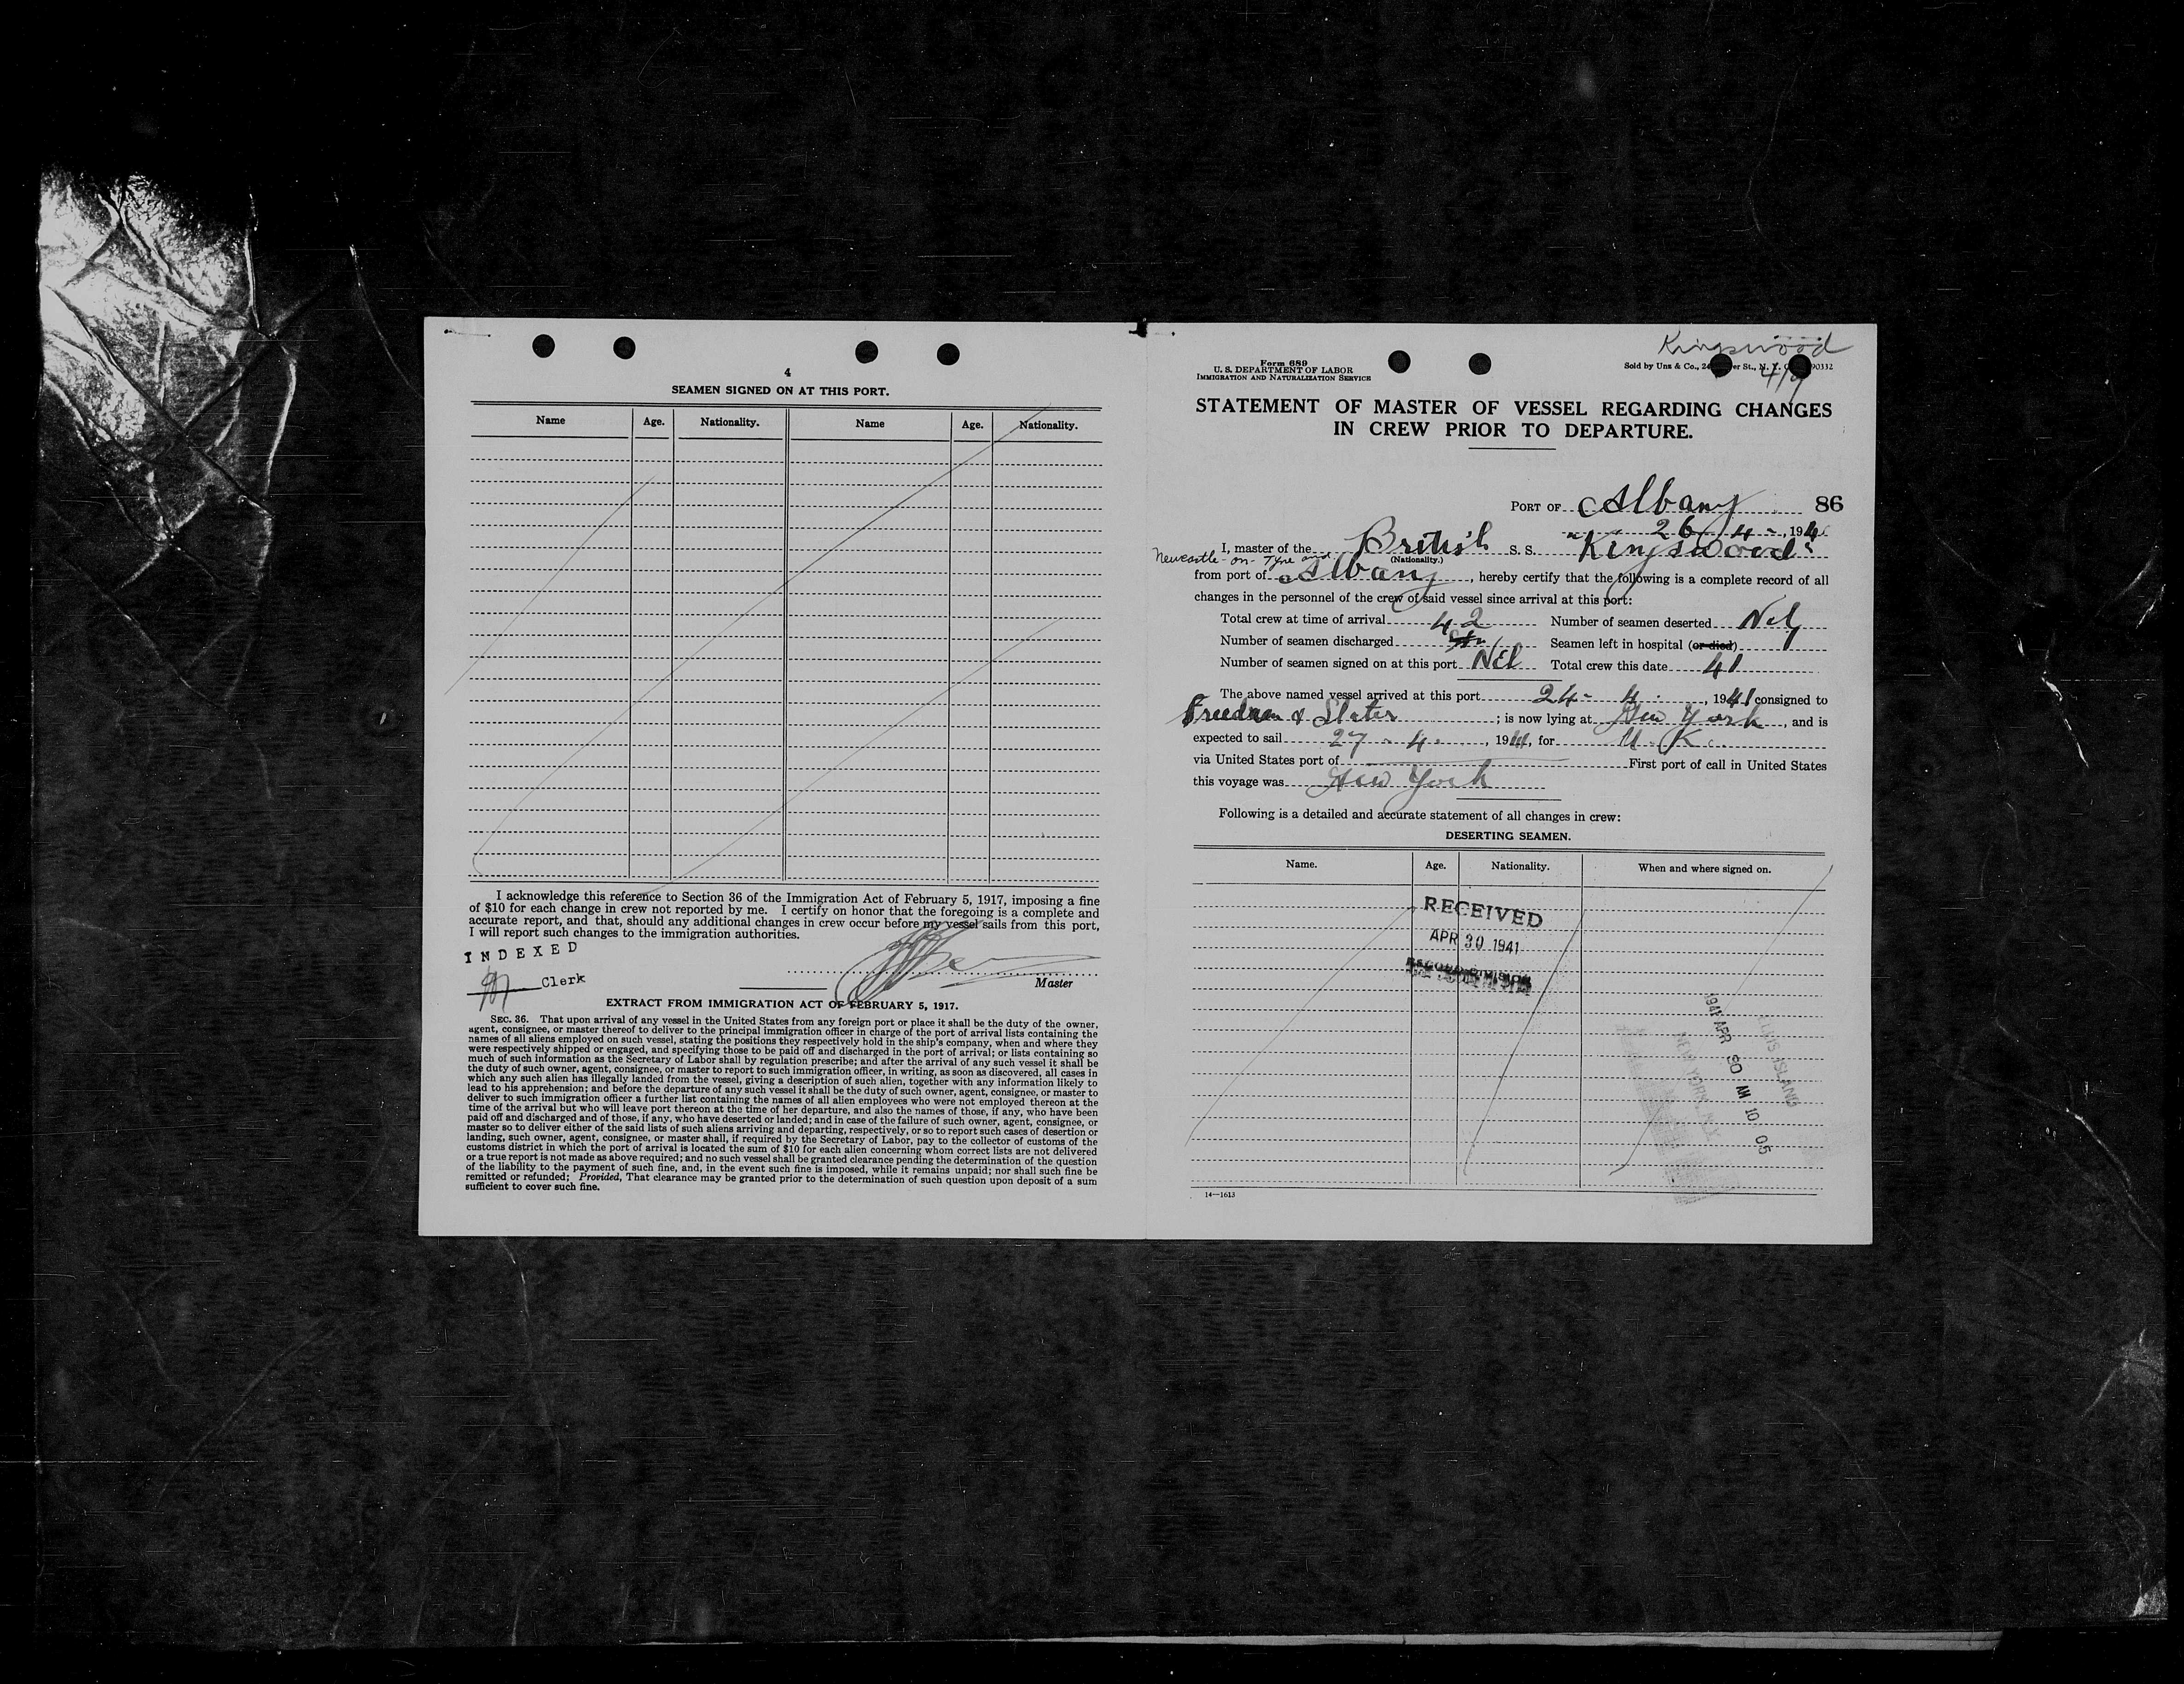 4
SEAMEN SIGNED ON AT THIS PORT.
Name Age. Nationality. Name Age. Nationality.
I acknowledge this reference to Section 36 of the Immigration Act of February 5, 1917, imposing a fine
of $10 for each change in crew not reported by me. I certify on honor that the foregoing is a complete and
accurate report, and that, should any additional changes in crew occur before my vessel sails from this port,
I will report such changes to the immigration authorities.
INDEXED
Clerk
Master
EXTRACT FROM IMMIGRATION ACT OF FEBRUARY 5, 1917.
SEC. 36. That upon arrival of any vessel in the United States from any foreign port or place it shall be the duty of the owner,
agent, consignee, or master thereof to deliver to the principal immigration officer in charge of the port of arrival lists containing the
names of all aliens employed on such vessel, stating the positions they respectively hold in the ship's company, when and where they
were respectively shipped or engaged, and specifying those to be paid off and discharged in the port of arrival; or lists containing so
much of such information as the Secretary of Labor shall by regulation prescribe; and after the arrival of any such vessel it shall be
the duty of such owner, agent, consignee, or master to report to such immigration officer, in writing, as soon as discovered, all cases in
which any such alien has illegally landed from the vessel, giving a description of such alien, together with any information likely to
lead to his apprehension; and before the departure of any such vessel it shall be the duty of such owner, agent, consignee, or master to
deliver to such immigration officer a further list containing the names of all alien employees who were not employed thereon at the
time of the arrival but who will leave port thereon at the time of her departure, and also the names of those, if any, who have been
paid off and discharged and of those, if any, who have deserted or landed; and in case of the failure of such owner, agent, consignee, or
master so to deliver either of the said lists of such aliens arriving and departing, respectively, or so to report such cases of desertion or
landing, such owner, agent, consignee, or master shall, if required by the Secretary of Labor, pay to the collector of customs of the
customs district in which the port of arrival is located the sum of $10 for each alien concerning whom correct lists are not delivered
or a true report is not made as above required; and no such vessel shall be granted clearance pending the determination of the question
of the liability to the payment of such fine, and, in the event such fine is imposed, while it remains unpaid; nor shall such fine be
remitted or refunded; Provided, That clearance may be granted prior to the determination of such question upon deposit of a sum
sufficient to cover such fine.
Kingswood
4/9
Form 689
U. S. DEPARTMENT OF LABOR
IMMIGRATION AND NATURALIZATION SERVICE
Sold by Unz & Co., 24 er St., N. Y. C. 90332
STATEMENT OF MASTER OF VESSEL REGARDING CHANGES
IN CREW PRIOR TO DEPARTURE.
PORT OF Albany 86
26-4-, 194
I, master of the British S. S. "Kingswood"
(Nationality.)
Newcastle-on-Tyne and
from port of Albany, hereby certify that the following is a complete record of all
changes in the personnel of the crew of said vessel since arrival at this port:
Total crew at time of arrival 42 Number of seamen deserted Nil
Number of seamen discharged Seamen left in hospital (or died) 1
Number of seamen signed on at this port Nil Total crew this date 41
The above named vessel arrived at this port 24-4-, 1941 consigned to
Freedman & Slater; is now lying at New York, and is
expected to sail 27-4-, 1941, for U.K.
via United States port of First port of call in United States
this voyage was New York
Following is a detailed and accurate statement of all changes in crew:
DESERTING SEAMEN.
Name. Age. Nationality. When and where signed on.
RECEIVED
APR 30 1941
RECORD DIVISION
1941 APR 30 AM 10 05
ELLIS ISLAND
NEW YORK, N.Y.
14—1613